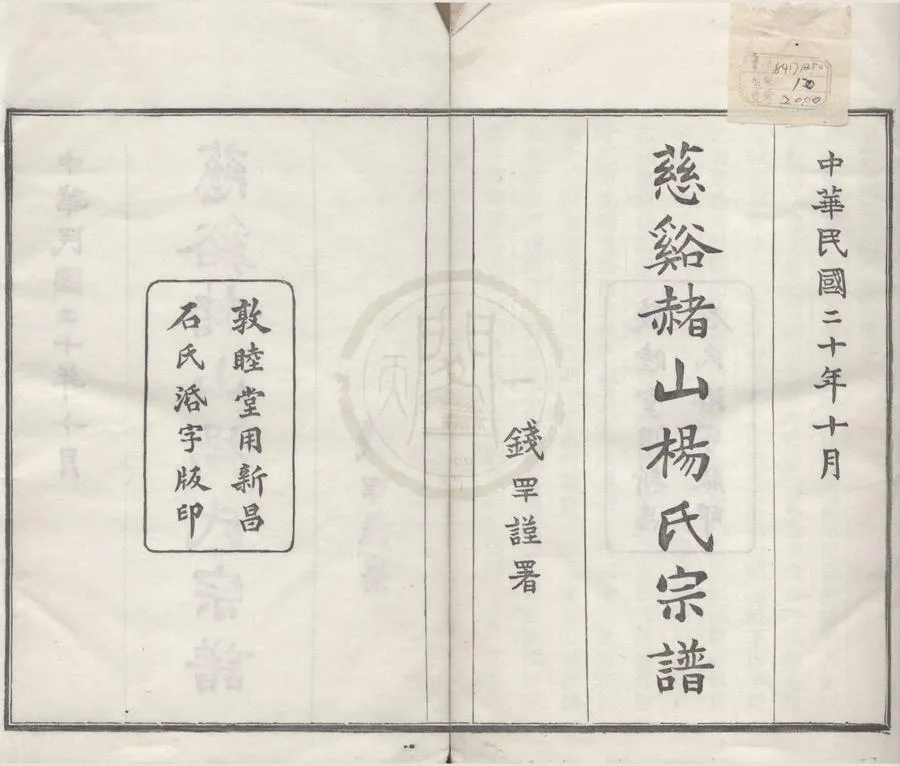 中華民國二十年十月
慈谿赭山楊氏宗譜
錢罕謹署
敦睦堂用新昌
石氏活字版印
8417/250
2000